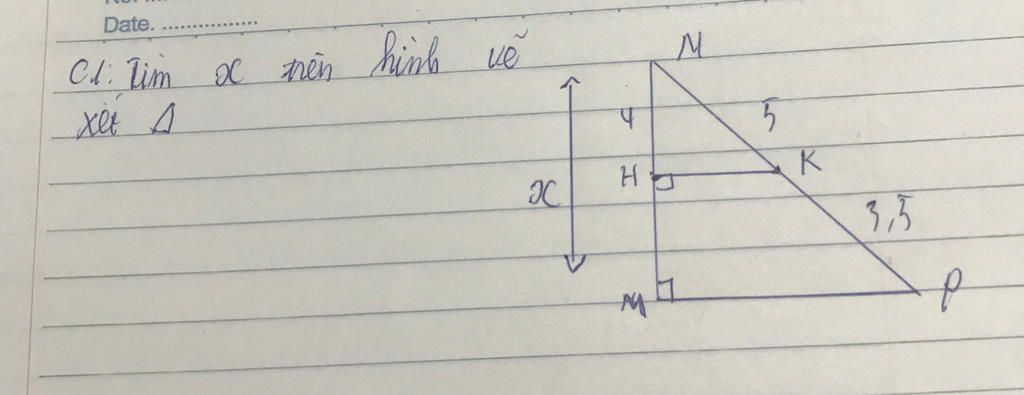 Date. ................
C1: Tìm x trên hình vẽ
xét Δ
M
4
5
H
K
x
3,5
M
P